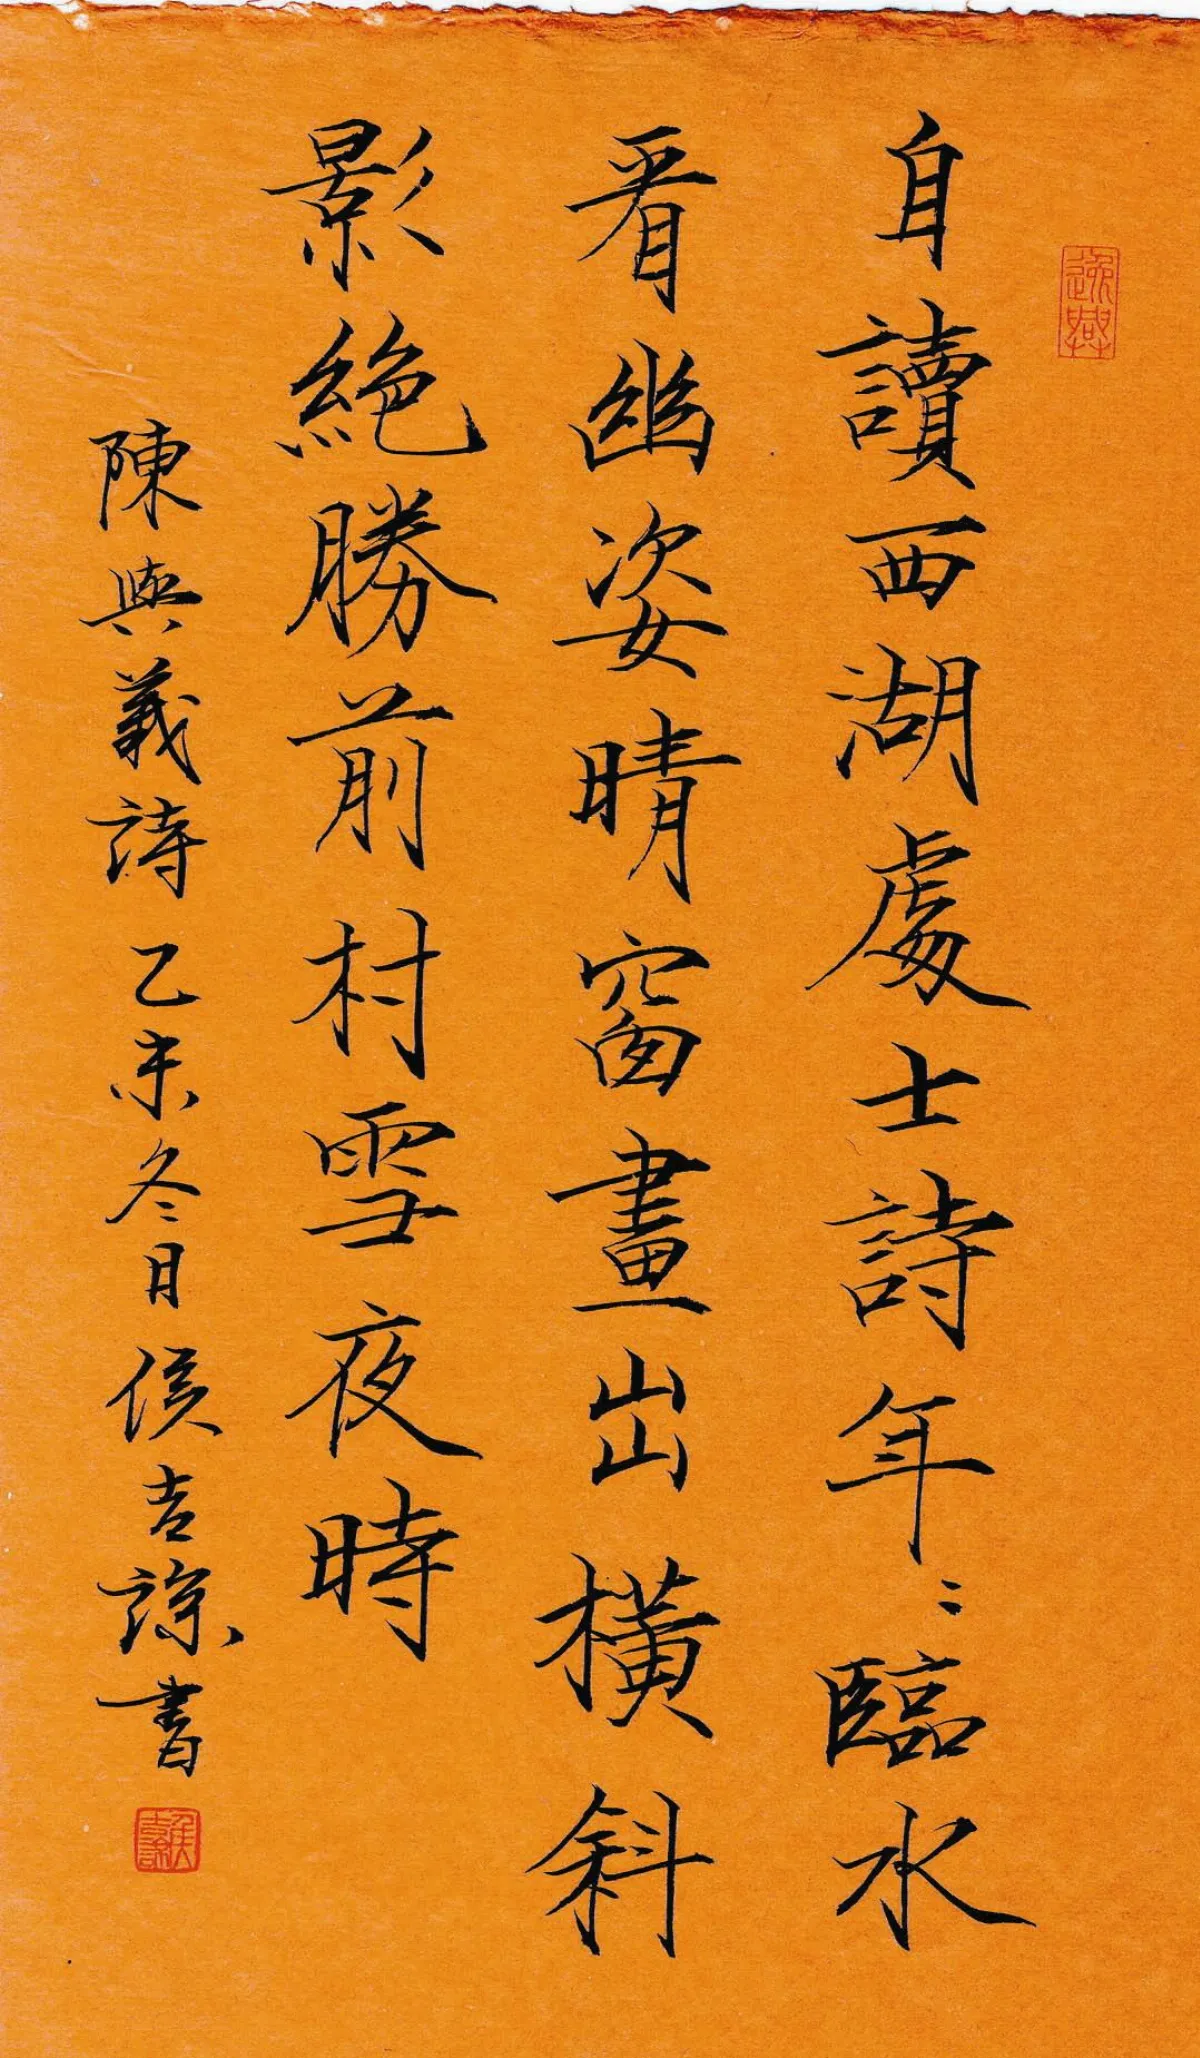 逸興
自讀西湖處士詩年〻臨水
看幽姿晴窗畫出橫斜
影絕勝前村雪夜時
陳與義詩乙未冬月侯吉諒書
侯吉諒